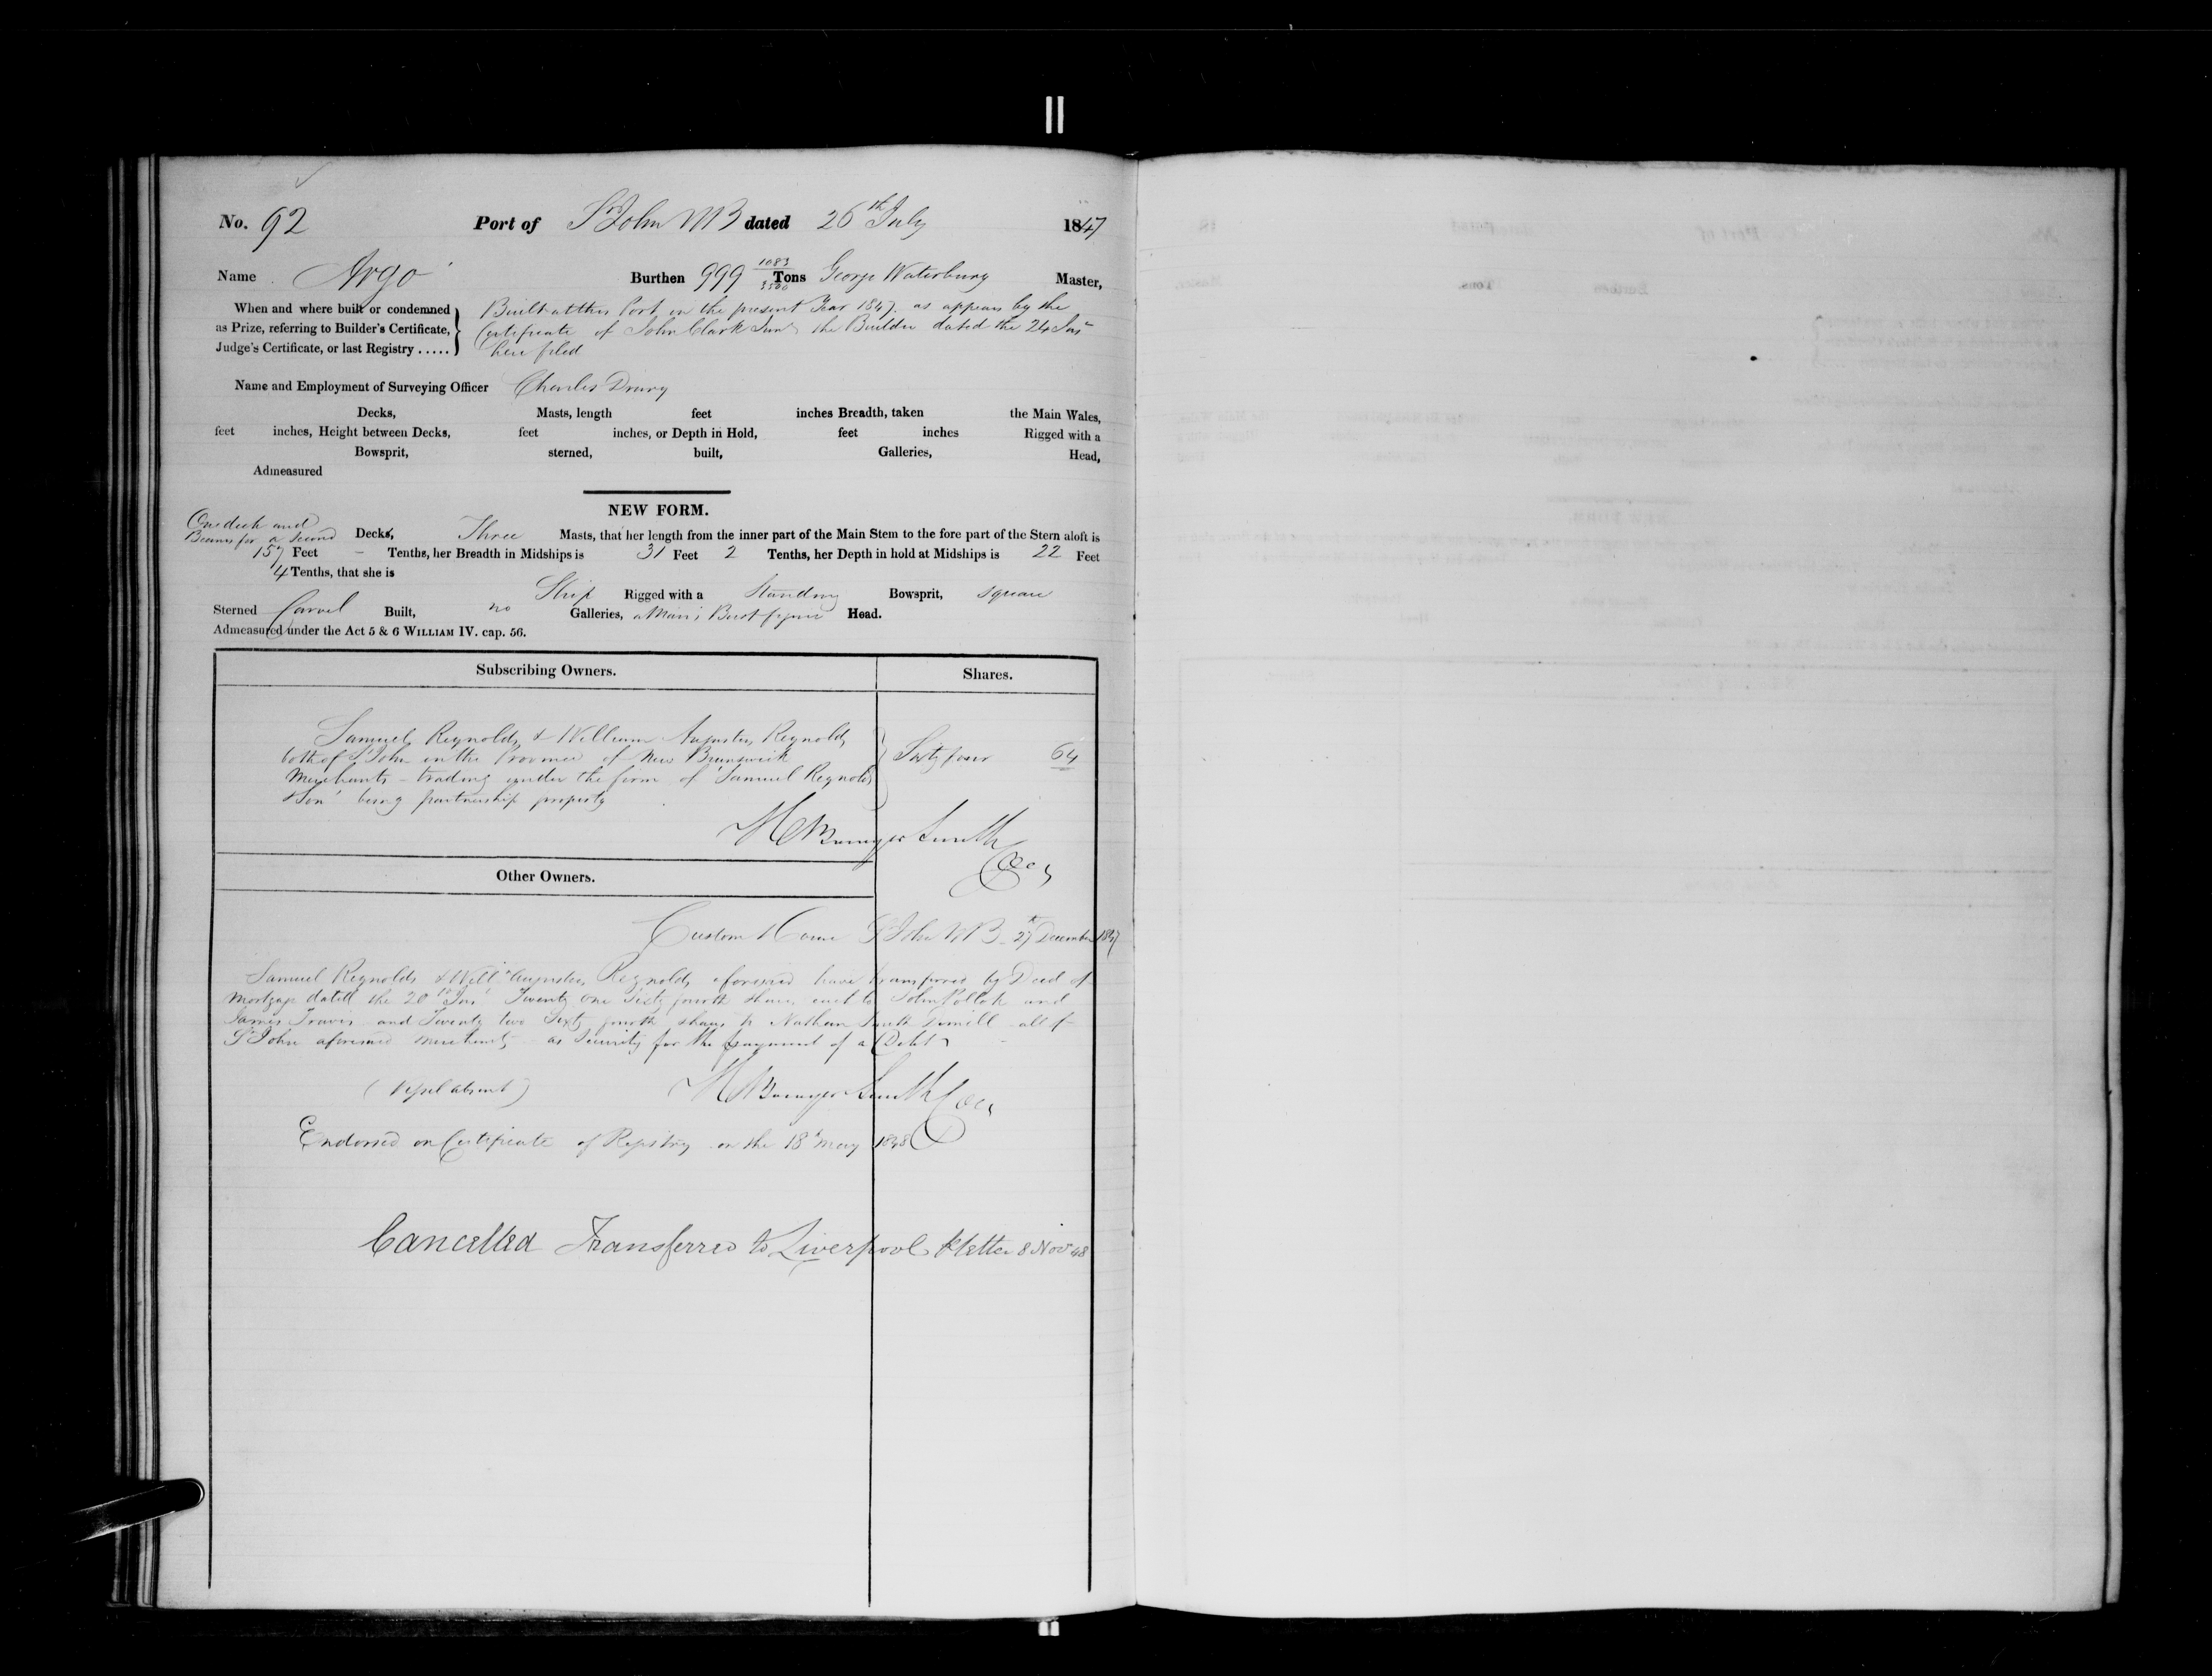 No. 92 Port of St John NB dated 26th July 1847
Name Argo Burthen 999 1083/3500 Tons George Waterbury Master,
When and where built or condemned as Prize, referring to Builder's Certificate, Judge's Certificate, or last Registry .....
Built at this Port in the present Year 1847. as appears by the
Certificate of John Clark Junr the Builder dated the 24 Inst
here filed
Name and Employment of Surveying Officer Charles Drury
Decks, Masts, length feet inches Breadth, taken the Main Wales,
feet inches, Height between Decks, feet inches, or Depth in Hold, feet inches Rigged with a
Bowsprit, sterned, built, Galleries, Head,
Admeasured
NEW FORM.
One deck and
Beams for a second Decks, Three Masts, that her length from the inner part of the Main Stem to the fore part of the Stern aloft is
157 Feet – Tenths, her Breadth in Midships is 31 Feet 2 Tenths, her Depth in hold at Midships is 22 Feet
4 Tenths, that she is
Ship Rigged with a Standing Bowsprit, square
Sterned Carvel Built, no Galleries, a Man's Bust figure Head.
Admeasured under the Act 5 & 6 WILLIAM IV. cap. 56.
Subscribing Owners. Shares.
Samuel Reynolds & William Augustus Reynolds
both of St John in the Province of New Brunswick Sixty four 64
Merchants – trading under the firm of 'Samuel Reynolds
& Son' being partnership property
H Bowyer Smith
Other Owners.
Custom House St John NB 27th December 1847
Samuel Reynolds & Willm Augustus Reynolds aforesaid have transferred by Deed of
Mortgage dated the 20th Inst Twenty one Sixty fourth shares each to John Pollok and
James Travis and Twenty two Sixty fourth shares to Nathan Smith Demill all of
St John aforesaid Merchants – as Security for the payment of a Debt
(Vessel absent) H Bowyer Smith
Endorsed on Certificate of Registry on the 18th May 1848
Cancelled Transferred to Liverpool letter 8 Nov 48